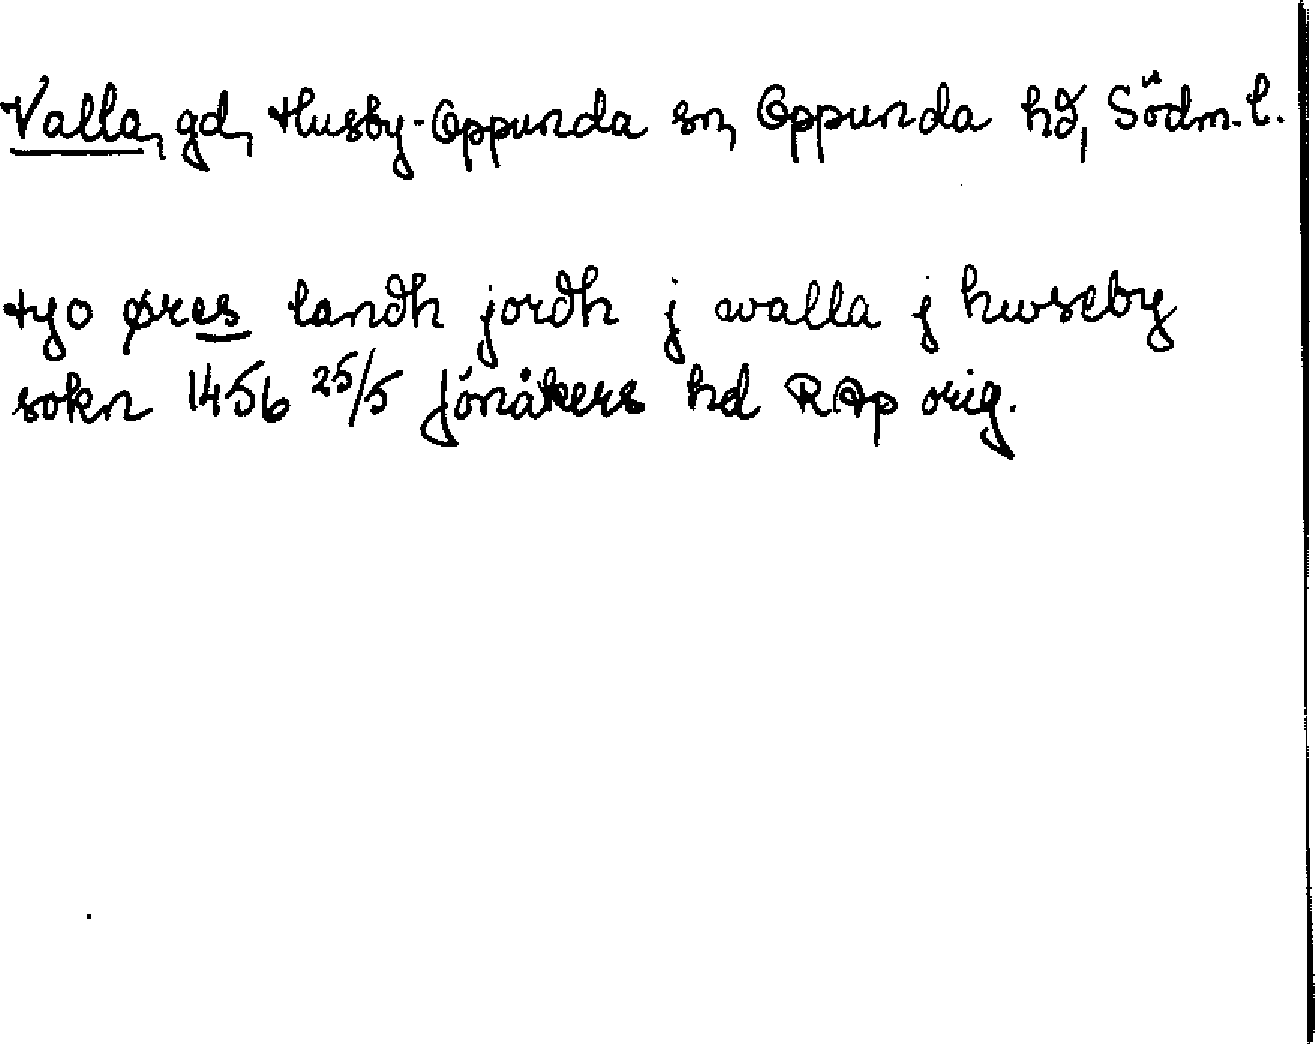 Valla, gd, Husby-Oppunda sn, Oppunda hd, Södm. l.
tyo øres landh jordh j walla j hwseby
sokn 1456 25/5 Jönåkers hd RAp orig.